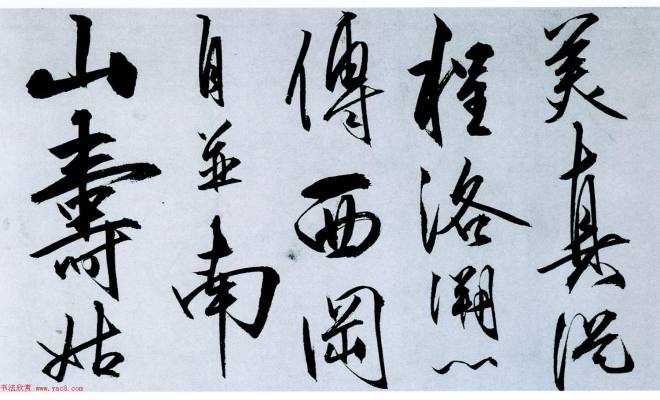 美真從
程洛溯心
傳西岡
自並南
山壽姑
书法欣赏 www.yac8.com